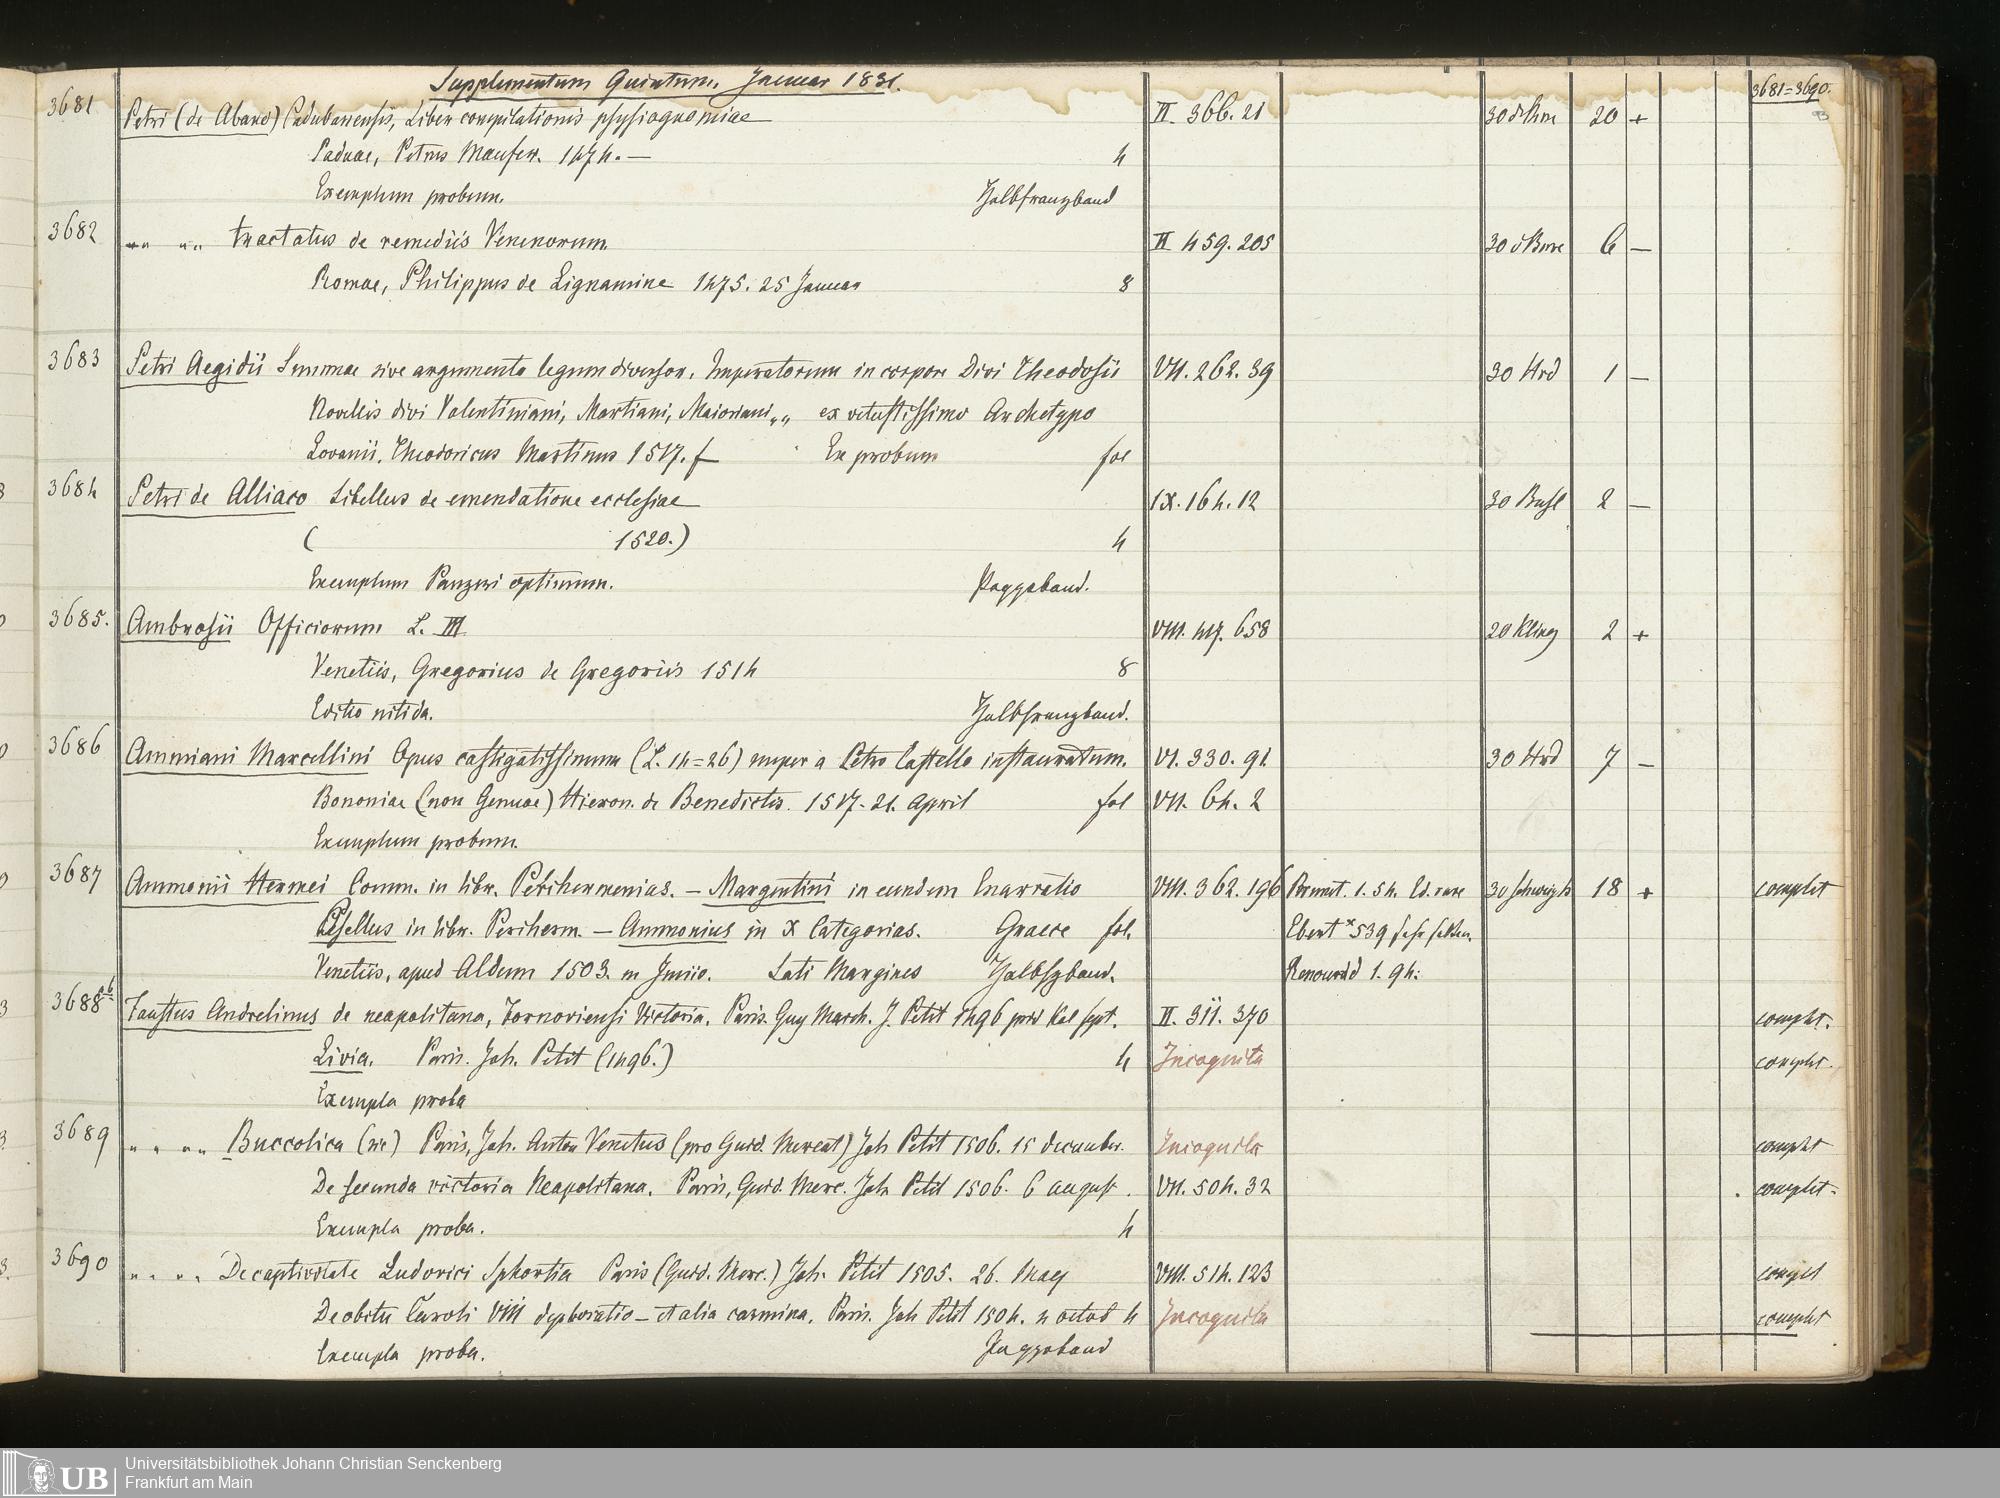 Supplementum Quintum. Januar 1831.
3681=3690.
3681 Petri (de Abano) Padubanensis, Liber compilationis physiognomiae II. 366. 21 30 20 +
Paduae, Petrus Maufer. 1474. — 4
Exemplum probum. Halbfranzband
3682 „ „ tractatus de remediis Venenorum II 459. 205 30 6 —
Romae, Philippus de Lignamine 1475. 25 Januar 8
3683 Petri Aegidii Summae sive argumenta legum diversor. Imperatorum in corpore Divi Theodosii VII. 262. 39 30 Hrd 1 —
Novellis divi Valentiniani, Martiani, Maioriani „ „ ex vetustissimo Archetypo
Lovanii, Theodoricus Martinus 1517. f Ex probum fol
3684 Petri de Alliaco Libellus de emendatione ecclesiae IX. 164. 12 30 Basl 2 —
( 1520.) 4
Exemplum Panzeri optimum. Pappeband.
3685. Ambrosii Officiorum L. III VIII. 417. 658 20 Kling 2 +
Venetiis, Gregorius de Gregoriis 1514 8
Editio nitida. Halbfranzband.
3686 Ammiani Marcellini Opus castigatissimum (L. 14=26) nuper a Petro Castello instauratum. VI. 330. 91. 30 Hrd 7 —
Bononiae (non Genuae) Hieron. de Benedictis. 1517. 21. April fol VII. 64. 2
Exemplum probum.
3687 Ammonii Hermei Comm. in libr. Perihermenias. — Margentini in eundem Enarratio VIII. 362. 196 Brunet. 1. 54. Ed. rare 30 Schweigh 18 + complet
Psellus in libr. Periherm. — Ammonius in X Categorias. Graece fol. Ebert * 539 sehr selten.
Venetiis, apud Aldum 1503. m Junio. Lati Margines Halbfzband. Renouard 1. 94:
3688 ab Faustus Andrelinus de neapolitana, Fornoviensi Victoria. Paris. Guy March. J. Petit 1496 prid Kal sept. II. 311. 370 complt.
Livia. Paris. Joh. Petit (1496.) 4 Incognita complet.
Exempla proba
3689 „ „ „ Buccolica (sic) Paris, Joh. Anton Venetus (pro Guid. Mercat) Joh Petit 1506. 15 december. Incognita complet
De secunda victoria Neapolitana. Paris, Guid. Merc. Joh Petit 1506. 6 august. VII. 504. 32 complet.
Exempla proba. 4
3690 „ „ „ De captivitate Ludovici Sphortia Paris (Guid. Merc.) Joh. Petit 1505. 26. May VIII. 514. 123 complet
De obitu Caroli VIII deploratio — et alia carmina. Paris. Joh Petit 1504. 4 octob 4 Incognita complet
Exempla proba. Pappeband
UB Universitätsbibliothek Johann Christian Senckenberg
Frankfurt am Main